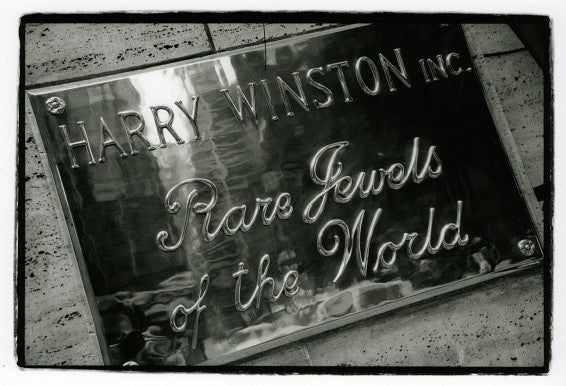 HARRY WINSTON INC.
Rare Jewels
of the World